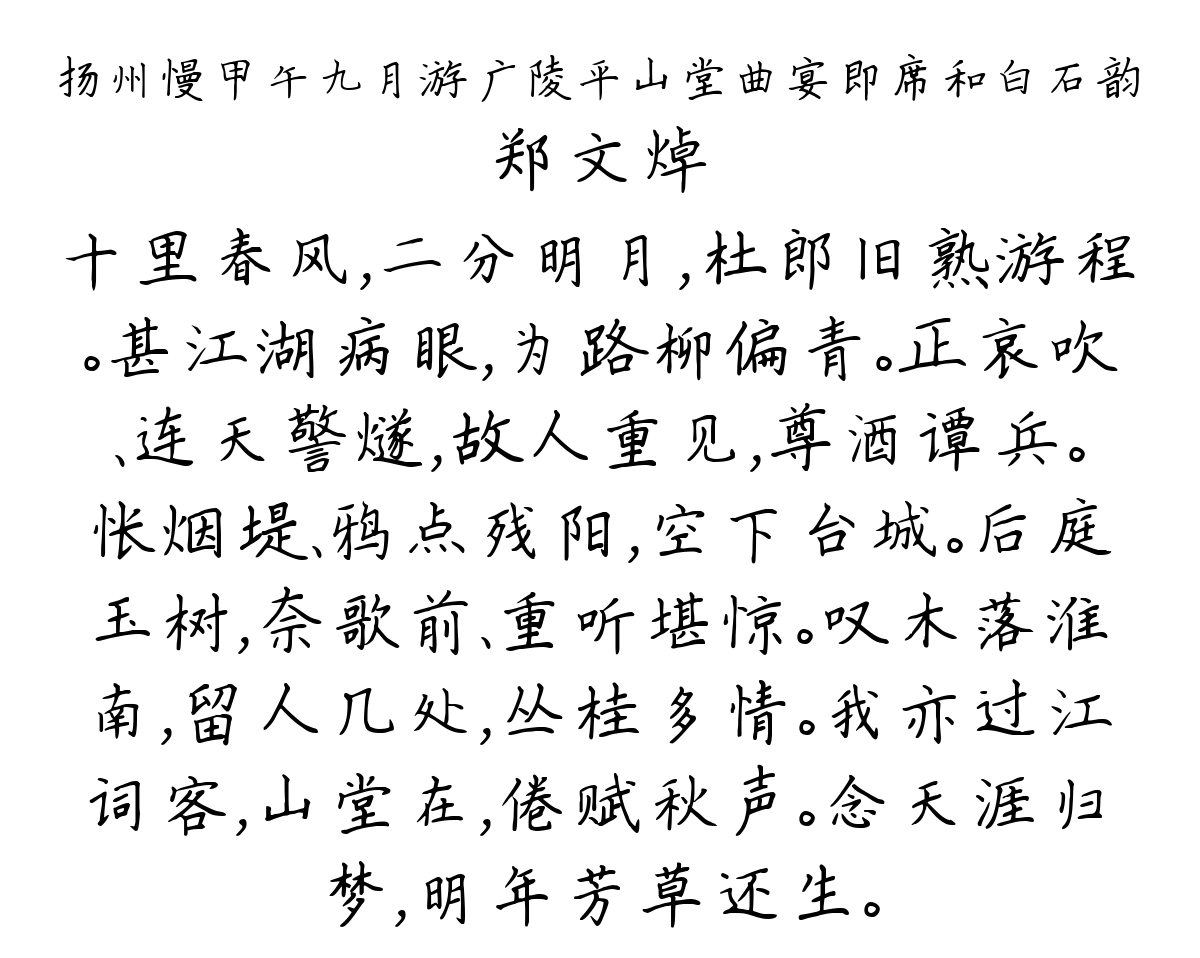 扬州慢甲午九月游广陵平山堂曲宴即席和白石韵
郑文焯
十里春风,二分明月,杜郎旧熟游程
。甚江湖病眼,为路柳偏青。正哀吹
、连天警燧,故人重见,尊酒谭兵。
怅烟堤、鸦点残阳,空下台城。后庭
玉树,奈歌前、重听堪惊。叹木落淮
南,留人几处,丛桂多情。我亦过江
词客,山堂在,倦赋秋声。念天涯归
梦,明年芳草还生。